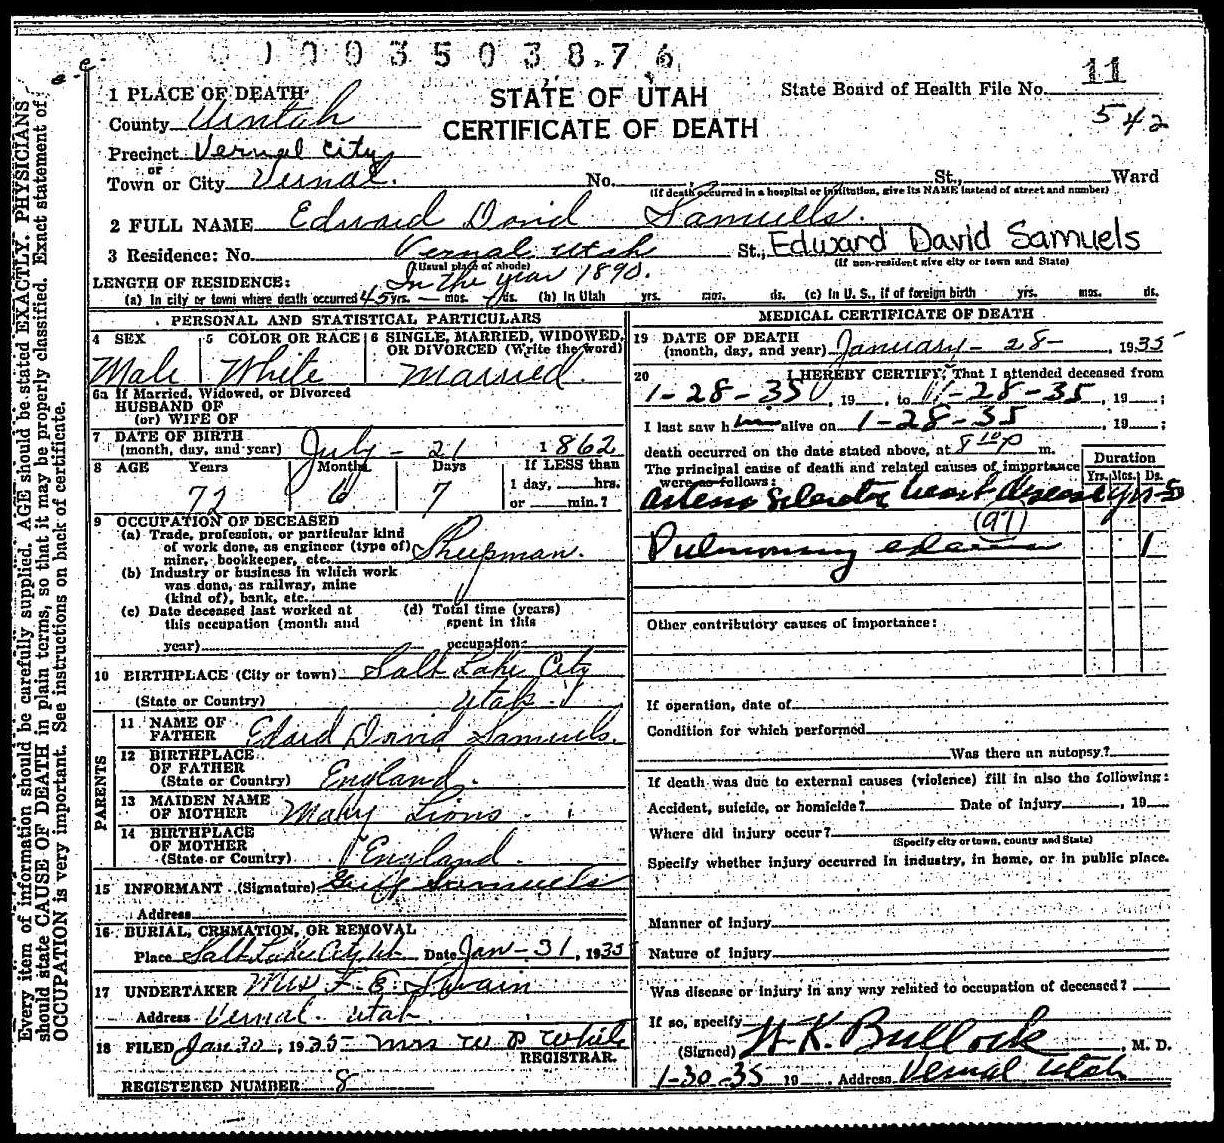 0 1 0 0 3 5 0 3 8 7 6
11
542
State Board of Health File No.
STATE OF UTAH
CERTIFICATE OF DEATH
1 PLACE OF DEATH
County Uintah
Precinct Vernal City
or
Town or City Vernal. No. St., Ward
(If death occurred in a hospital or institution, give its NAME instead of street and number)
2 FULL NAME Edward David Samuels.
3 Residence: No. Vernal Utah St., Edward David Samuels
(Usual place of abode) (If non-resident give city or town and State)
LENGTH OF RESIDENCE: In the year 1890.
(a) In city or town where death occurred 45 yrs. — mos. ds. (b) In Utah yrs. mos. ds. (c) In U. S., if of foreign birth yrs. mos. ds.
PERSONAL AND STATISTICAL PARTICULARS
4 SEX Male
5 COLOR OR RACE White
6 SINGLE, MARRIED, WIDOWED, OR DIVORCED (Write the word) Married.
6a If Married, Widowed, or Divorced
HUSBAND OF
(or) WIFE OF
7 DATE OF BIRTH
(month, day, and year) July - 21 1862
8 AGE Years Months Days If LESS than
1 day, hrs.
72 6 7 or min.?
9 OCCUPATION OF DECEASED
(a) Trade, profession, or particular kind
of work done, as engineer (type of)
miner, bookkeeper, etc. Sheepman.
(b) Industry or business in which work
was done, as railway, mine
(kind of), bank, etc.
(c) Date deceased last worked at
this occupation (month and
year)
(d) Total time (years)
spent in this
occupation
10 BIRTHPLACE (City or town) Salt Lake City
(State or Country) Utah.
PARENTS
11 NAME OF
FATHER Edard David Samuels.
12 BIRTHPLACE
OF FATHER
(State or Country) England.
13 MAIDEN NAME
OF MOTHER Mary Lions
14 BIRTHPLACE
OF MOTHER
(State or Country) England.
15 INFORMANT (Signature) Samuels
Address
16 BURIAL, CREMATION, OR REMOVAL
Place Salt Lake City Ut Date Jan - 31, 1935
17 UNDERTAKER Mrs F. E. Swain
Address Vernal Utah.
18 FILED Jan 30, 1935 Mrs W P White
REGISTRAR.
REGISTERED NUMBER 8
MEDICAL CERTIFICATE OF DEATH
19 DATE OF DEATH
(month, day, and year) January - 28 - , 1935
20 I HEREBY CERTIFY, That I attended deceased from
1-28-35, 19 , to 1-28-35, 19 ;
I last saw him alive on 1-28-35, 19 ;
death occurred on the date stated above, at 8 10 P m.
The principal cause of death and related causes of importance
were as follows:
Duration
Yrs. Mos. Ds.
Arterio Sclerotic heart disease yrs-5
(97)
Pulmonary edema 1
Other contributory causes of importance:
If operation, date of
Condition for which performed
Was there an autopsy?
If death was due to external causes (violence) fill in also the following:
Accident, suicide, or homicide? Date of injury , 19
Where did injury occur?
(Specify city or town, county and State)
Specify whether injury occurred in industry, in home, or in public place.
Manner of injury
Nature of injury
Was disease or injury in any way related to occupation of deceased?
If so, specify
(Signed) W. K. Bullock, M. D.
1-30-35 19 , Address Vernal, Utah
Every item of information should be carefully supplied. AGE should be stated EXACTLY. PHYSICIANS
should state CAUSE OF DEATH in plain terms, so that it may be properly classified. Exact statement of
OCCUPATION is very important. See instructions on back of certificate.